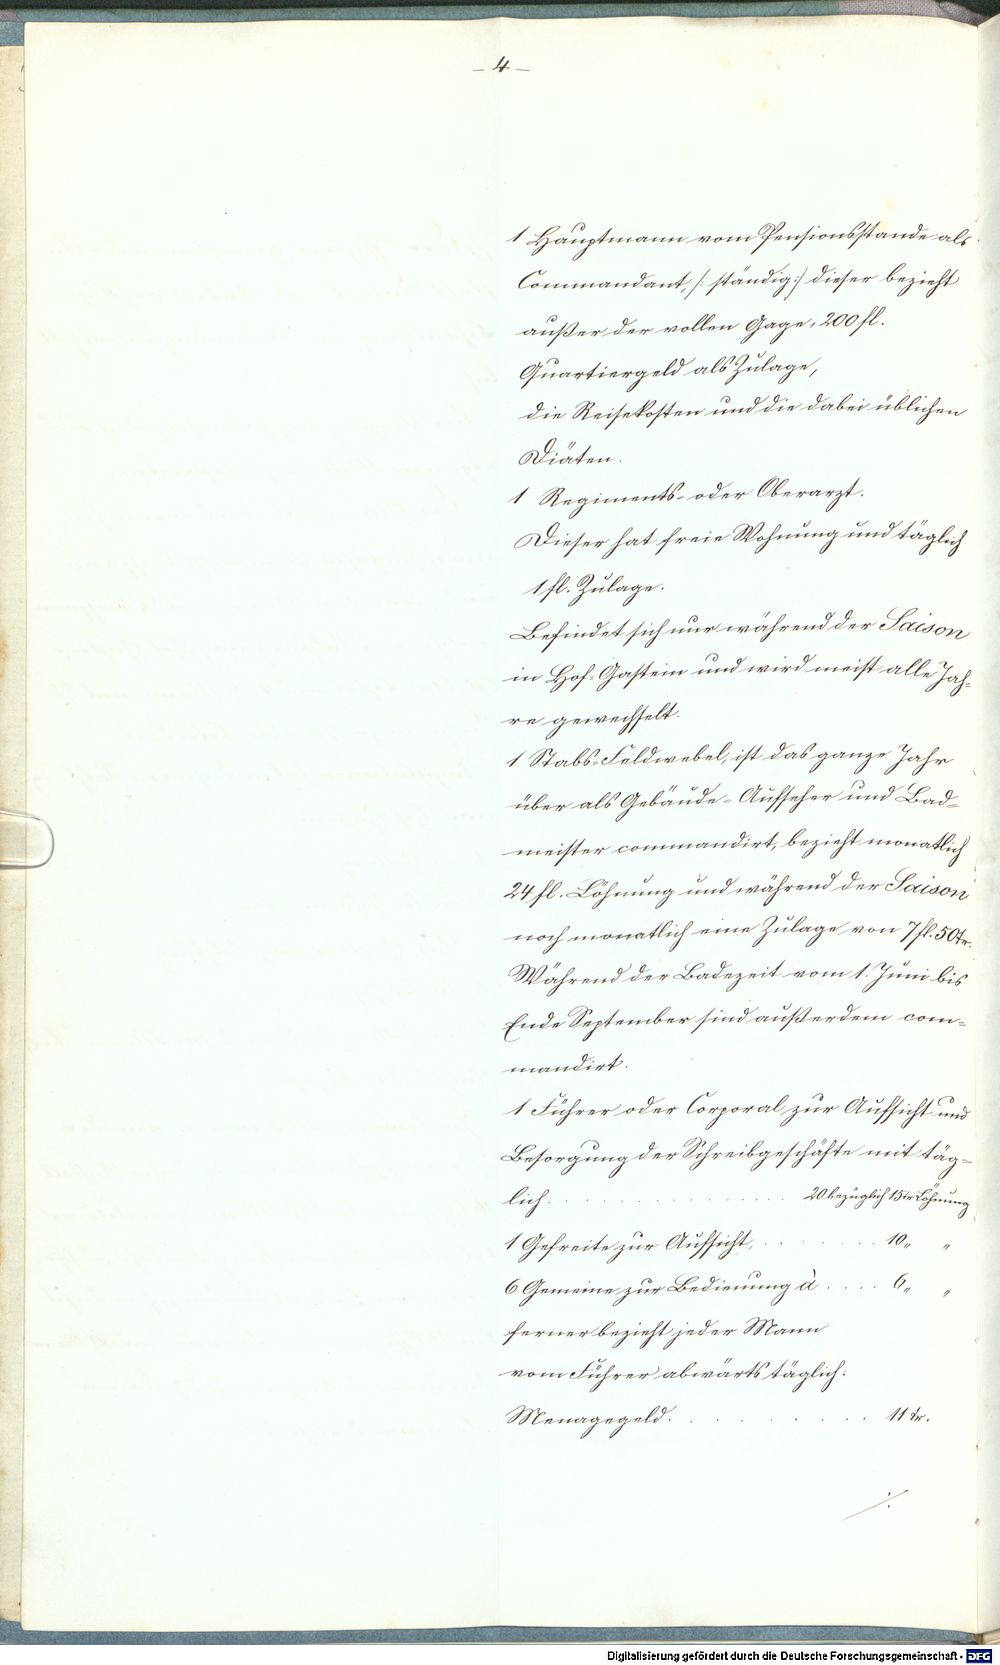 – 4 –
1 Hauptmann vom Pensionsstande als
Commandant, /: ständig :/ dieser bezieht
außer der vollen Gage, 200 fl.
Quartiergeld als Zulage,
die Reisekosten und die dabei üblichen
Diäten.
1 Regiments- oder Oberarzt.
Dieser hat freie Wohnung und täglich
1 fl. Zulage.
Befindet sich nur während der Saison
in Hof-Gastein und wird meist alle Jah-
re gewechselt.
1 Stabs-Feldwebel, ist das ganze Jahr
über als Gebäude-Aufseher und Bad-
meister commandirt, bezieht monatlich
24 fl. Löhnung und während der Saison
noch monatlich eine Zulage von 7 fl. 50 kr.
Während der Badezeit vom 1. Juni bis
Ende September sind außerdem com-
mandirt.
1 Führer oder Corporal zur Aufsicht und
Besorgung der Schreibgeschäfte mit täg-
lich . . . . . . . . . . . . . . 20 bezüglich 15 kr Löhnung
1 Gefreite zur Aufsicht, . . . . . . . 10 „ „
6 Gemeine zur Bedienung à . . . . 6 „ „
ferner bezieht jeder Mann
vom Führer abwärts täglich:
Menagegeld . . . . . . . . . . 11 kr.
./.
Digitalisierung gefördert durch die Deutsche Forschungsgemeinschaft - DFG